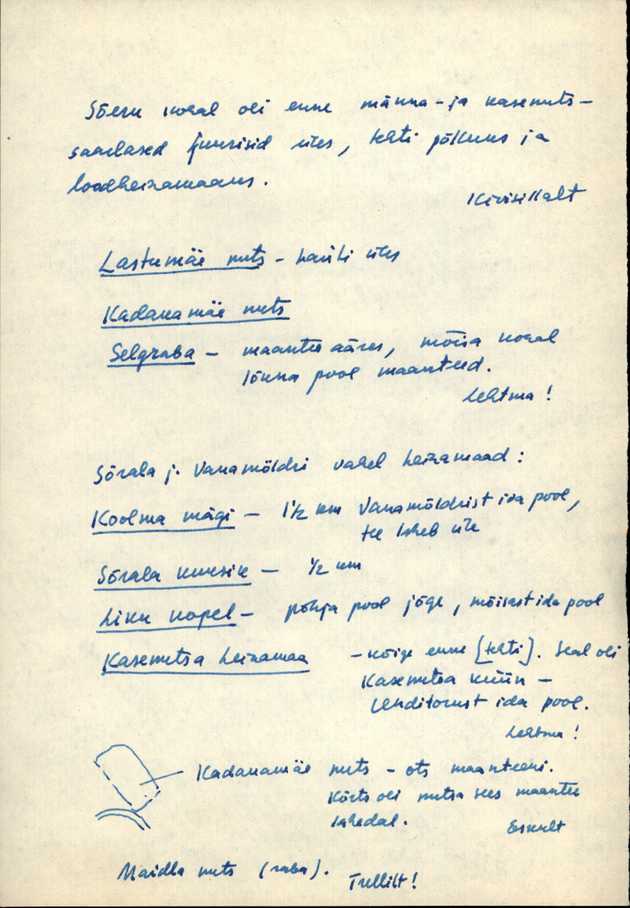 Sõeru nogal oli enne männa- ja kasemets-
saadased juurisid üles, tehti põlluks ja
loodheinamaaks.
Kivisikalt
Lastumäe mets - hariti üles
Kadanamäe mets
Selgraba - maantee ääres, mõisa nogal
lõuna pool maanteed.
Lehtma!
Sõrala j. Vanamöldri vahel heinamaad:
Koolma mägi - 1½ km Vanamöldrist ida pool,
tee läheb üle
Sõrala kuusik - ½ km
Liku kopel - põhja pool jõge, mõisast ida pool
Kasemetsa heinamaa - kõige enne [tehti]. Seal oli
Kasemetsa küün -
Unditorust ida pool.
Lehtma!
Kadanamäe mets - ots maanteeni.
Kõrts oli metsa sees maantee
lähedal.
Eskult
Maidla mets (raba).
Trellilt!